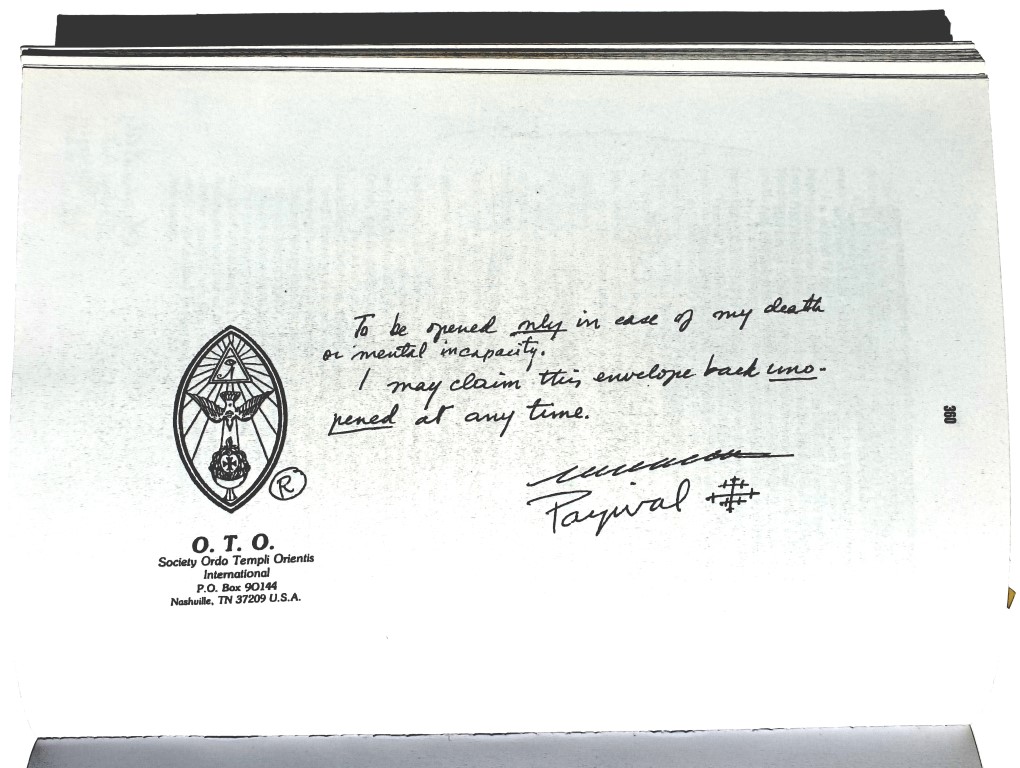 To be opened only in case of my death
or mental incapacity.
I may claim this envelope back uno-
pened at any time.
Parzival
R
O. T. O.
Society Ordo Templi Orientis
International
P.O. Box 90144
Nashville, TN 37209 U.S.A.
360